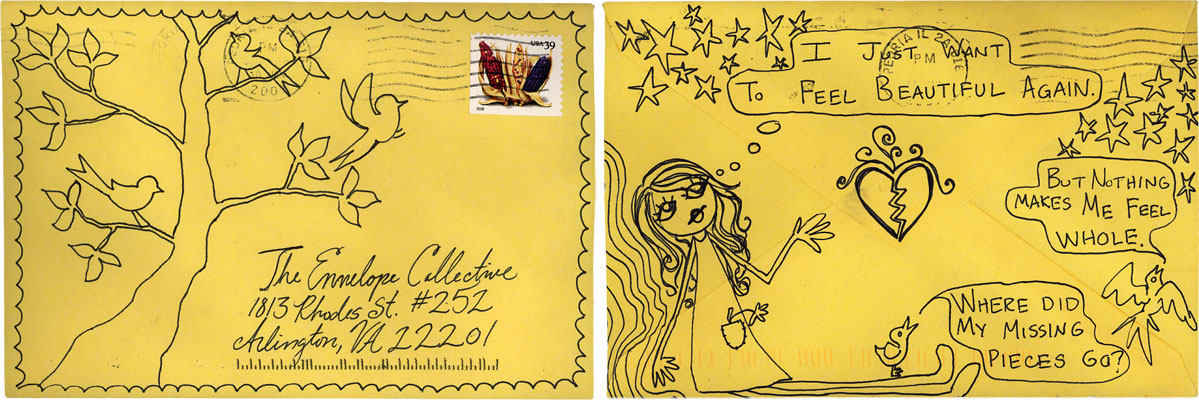 PM
200
USA 39
The Envelope Collective
1813 Rhodes St. #252
Arlington, VA 22201
PEORIA IL
PM
I JUST WANT
TO FEEL BEAUTIFUL AGAIN.
BUT NOTHING
MAKES ME FEEL
WHOLE.
WHERE DID
MY MISSING
PIECES GO?